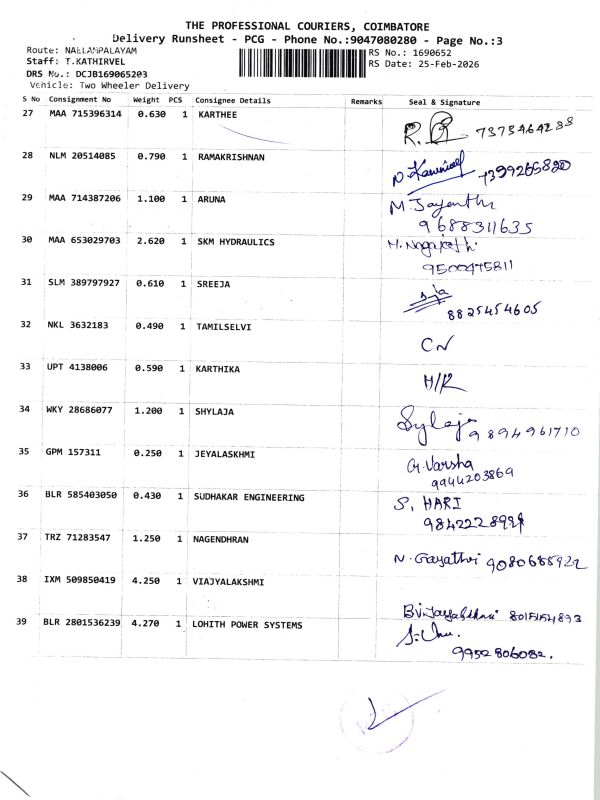 THE PROFESSIONAL COURIERS, COIMBATORE
Delivery Runsheet - PCG - Phone No.:9047080280 - Page No.:3
Route: NALLAMPALAYAM
RS No.: 1690652
Staff: T.KATHIRVEL
RS Date: 25-Feb-2026
DRS No.: DCJB169065203
Vehicle: Two Wheeler Delivery
S No Consignment No Weight PCS Consignee Details Remarks Seal & Signature
27 MAA 715396314 0.630 1 KARTHEE
28 NLM 20514085 0.790 1 RAMAKRISHNAN
29 MAA 714387206 1.100 1 ARUNA M. Jayanthi
9688311635
30 MAA 653029703 2.620 1 SKM HYDRAULICS
9500475811
31 SLM 389797927 0.610 1 SREEJA
8825454605
32 NKL 3632183 0.490 1 TAMILSELVI
CN
33 UPT 4138006 0.590 1 KARTHIKA
H/R
34 WKY 28686077 1.200 1 SHYLAJA
9894961710
35 GPM 157311 0.250 1 JEYALASKHMI G. Varsha
9944203869
36 BLR 585403050 0.430 1 SUDHAKAR ENGINEERING S. HARI
37 TRZ 71283547 1.250 1 NAGENDHRAN
N. Gayathri 9080688922
38 IXM 509850419 4.250 1 VIAJYALAKSHMI
8015154893
39 BLR 2801536239 4.270 1 LOHITH POWER SYSTEMS
9952806082.